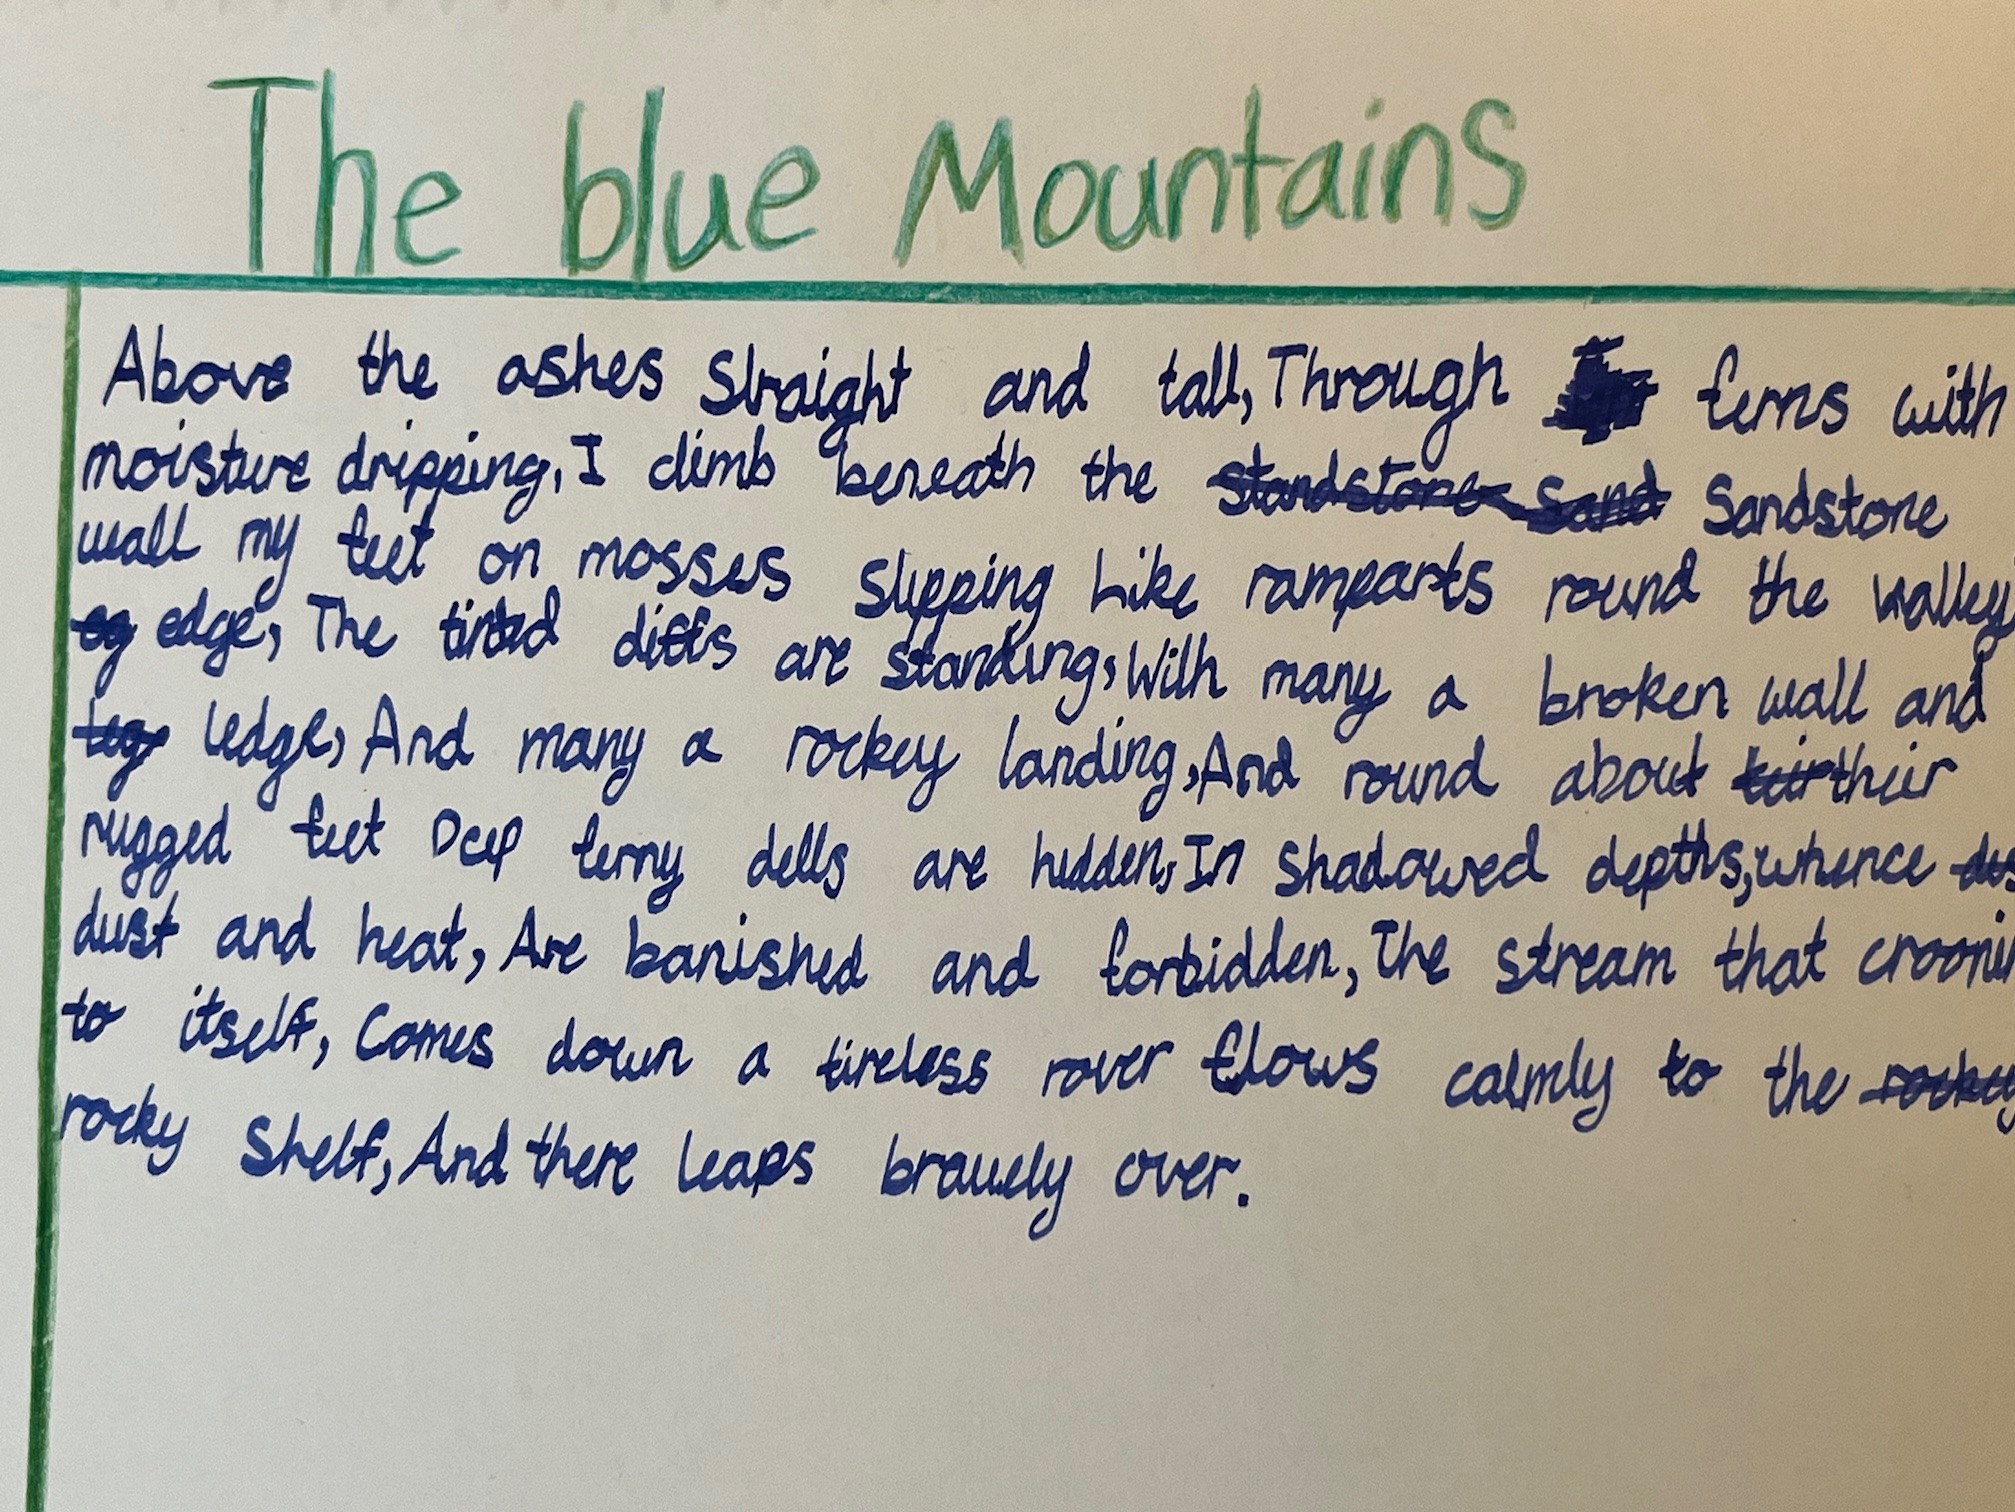 The blue Mountains
Above the ashes Straight and tall, Through ferns with
moisture dripping, I climb beneath the Standstone Sand Sandstone
wall my feet on mosses Slipping Like ramparts round the Valley
eg edge, The tinted cliffs are standing, With many a broken wall and
leg ledge, And many a rockey landing, And round about teir their
rugged feet Deep ferny dells are hidden, In shadowed depths, whence dus
dust and heat, Are banished and forbidden, The stream that
to itself, Comes down a tireless rover flows calmly to the rockey
rocky Shelf, And there leaps bravely over.